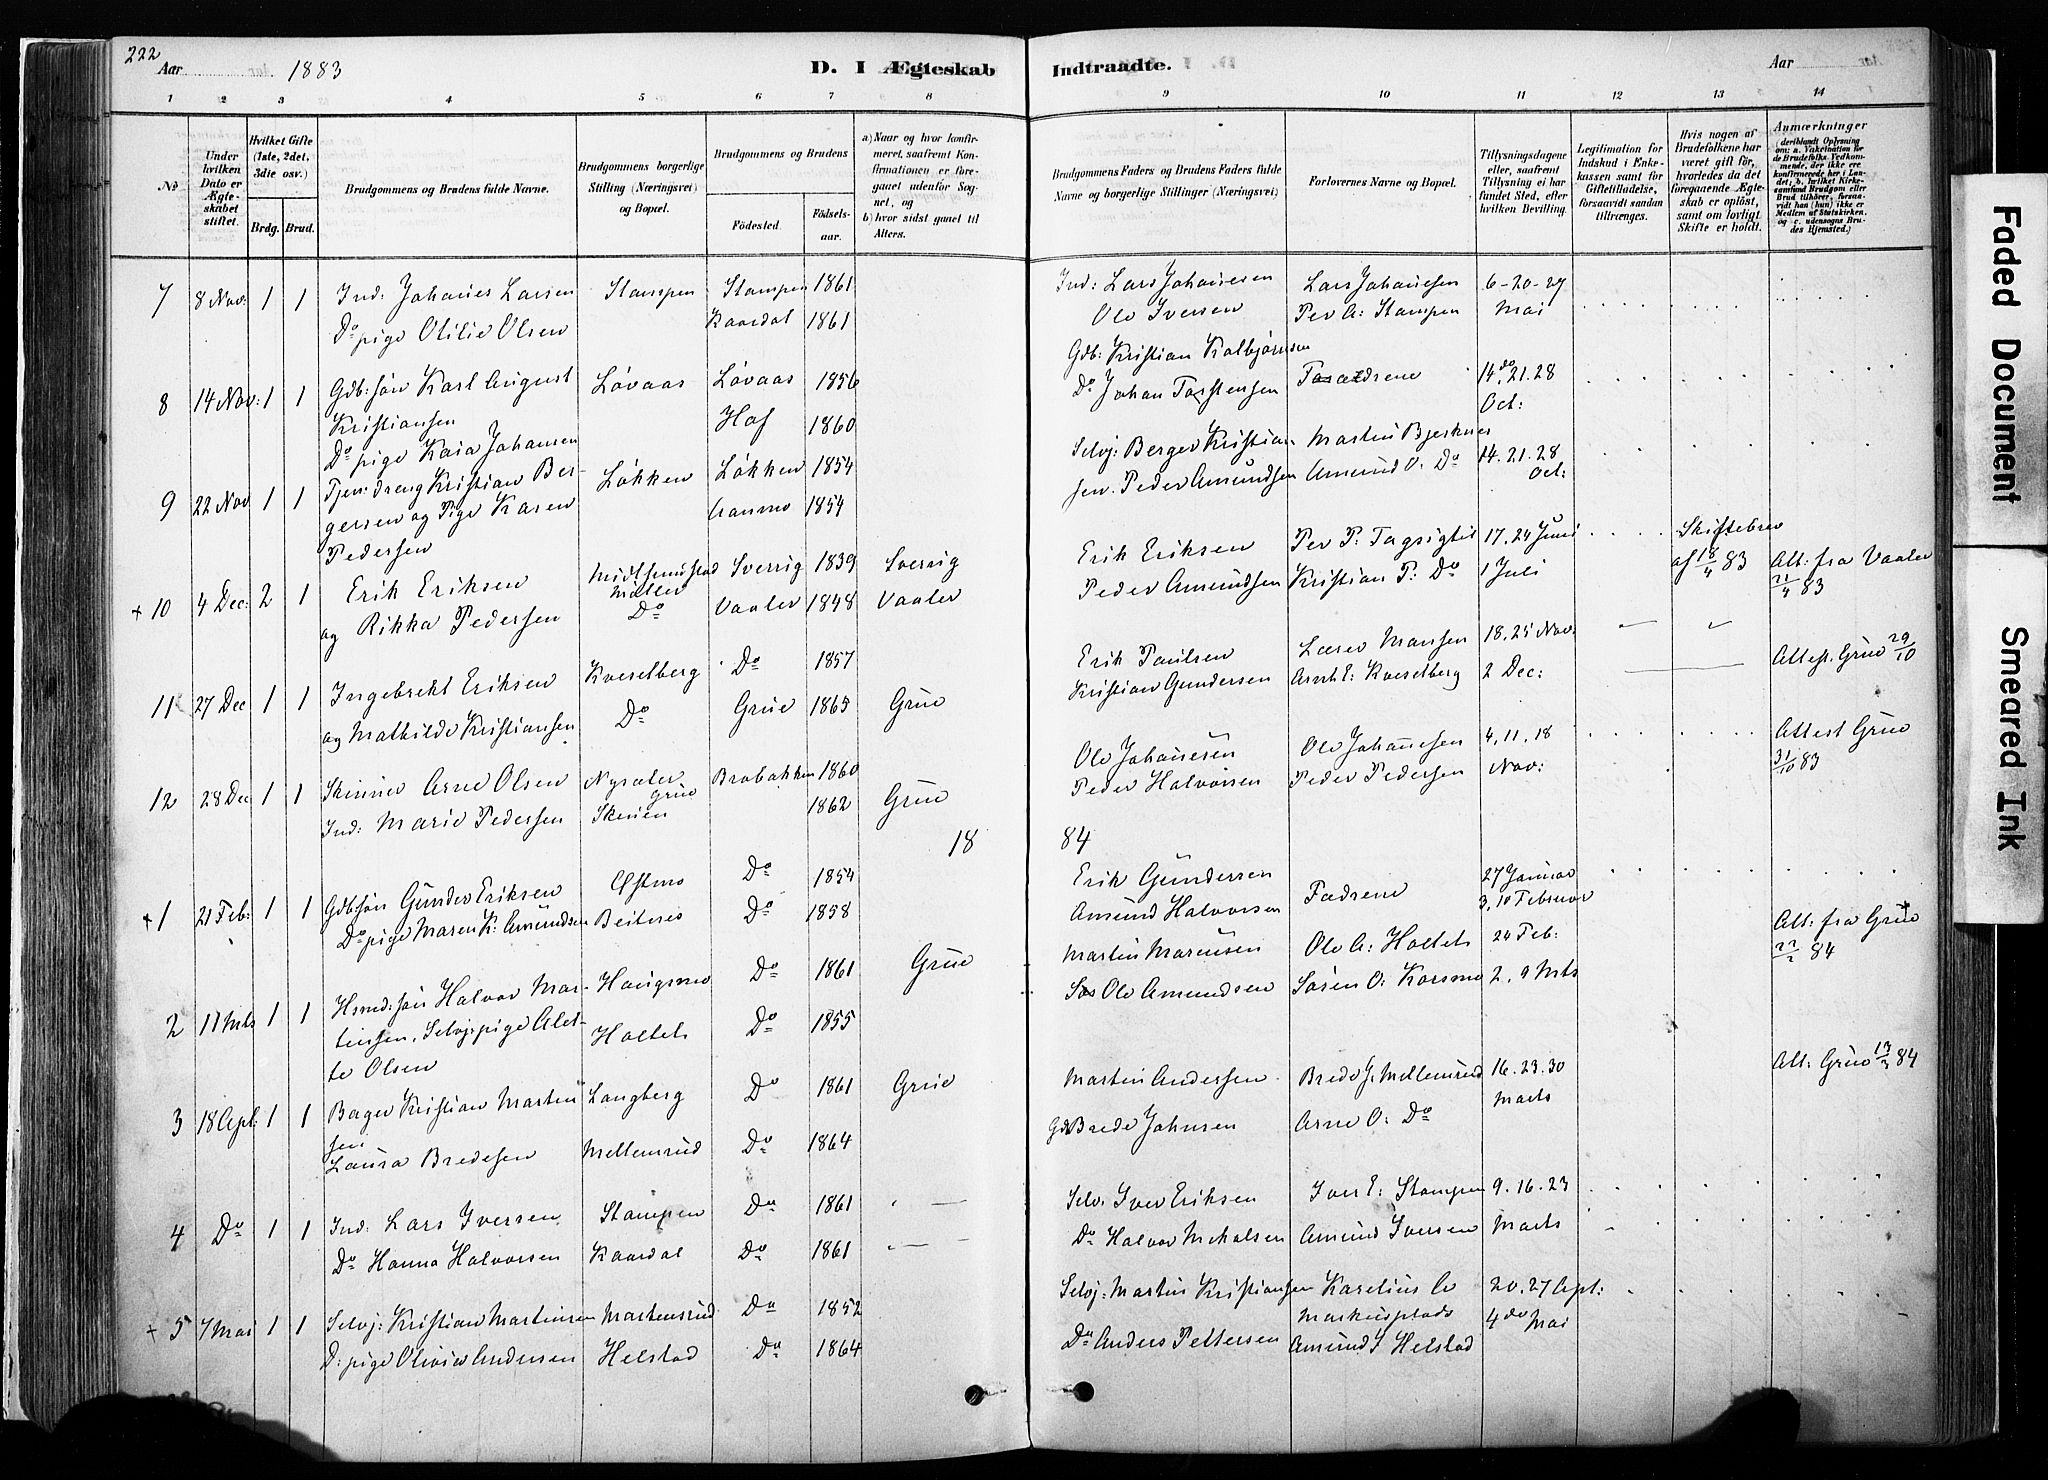 222
Aar 1883
D. I Ægteskab Indtraadte.
Aar
1 2 3 4 5 6 7 8 9 10 11 12 13 14
No
Under hvilken Dato er Ægteskabet stiftet.
Hvilket Gifte (1ste, 2det, 3die osv.)
Brdg. Brud.
Brudgommens og Brudens fulde Navne.
Brudgommens borgerlige Stilling (Næringsvei) og Bopæl.
Brudgommens og Brudens
Fødested. Fødselsaar.
a) Naar og hvor konfirmeret, saafremt Konfirmationen er foregaaet udenfor Sognet, og
b) hvor sidst gaaet til Alters.
Brudgommens Faders og Brudens Faders fulde Navne og borgerlige Stillinger (Næringsvei)
Forlovernes Navne og Bopæl.
Tillysningsdagene eller, saafremt Tillysning ei har fundet Sted, efter hvilken Bevilling.
Legitimation for Indskud i Enkekassen samt for Giftetilladelse, forsaavidt saadan tiltrænges.
Hvis nogen af Brudefolkene har været gift før, hvorledes da det foregaaende Ægteskab er opløst, samt om lovligt Skifte er holdt.
Anmærkninger (deriblandt Oplysning om: a. Vakcination for de Brudefolks Vedkommende, der ikke ere konfirmerede her i Landet; b. hvilket Kirkesamfund Brudgom eller Brud tilhører, forsaavidt han (hun) ikke er Medlem af Statskirken, og c. udensogns Brudes Hjemsted.)
7 8 Nov: 1 1 Ind: Johanes Larsen Stampen Stampen 1861 Ind: Lars Johanesen Lars Johanesen 6-20-27
Do pige Otilie Olsen Kaardal 1861 Ole Iversen Per A: Stampen Mai
Gdb: Kristian Kolbjørnsen
8 14 Nov: 1 1 Gdb: søn Karl August Løvaas Løvaas 1856 Do Johan Torstensen 14de 21. 28
Kristiansen Hof 1860 Oct:
Do pige Kaia Johansen Selvj: Berger Kristian Martin Bjerknes
9 22 Nov 1 1 Tjen: dreng Kristian Ber- Løkken Løkken 1854 sen. Peder Amundsen Amund O. Do 14. 21. 28
gersen og Pige Karen Aanmo 1854 Oct:
Pedersen
+ 10 4 Dec: 2 1 Erik Eriksen Sverrig 1839 Sverrig Erik Eriksen Per P: 17. 24 Juni Skiftebrev
og Rikka Pedersen Do Vaaler 1848 Vaaler Peder Amundsen Kristian P: Do 1 Juli af 18/4 83 Att: fra Vaaler
21/4 83
11 27 Dec 1 1 Ingebrekt Eriksen Kveselberg Do 1857 Erik Paulsen Mansen 18. 25 Nov:
og Mathilde Kristiansen Do Grue 1865 Grue Kristian Gundersen E: Kveselberg 2 Dec: Attest. Grue 29/10
12 28 Dec 1 1 Arne Olsen Nysæter Brobakken 1860 Ole Johanesen Ole Johannesen 4. 11. 18 Attest Grue
Ind: Marie Pedersen Grue 1862 Grue Peder Halvorsen Peder Pedersen Nov: 31/10 83
18 84
+ 1 21 Feb: 1 1 Gdbsøn Gunder Eriksen Østmo Do 1854 Erik Gundersen Fædrene 27 Januar
Do pige Maren K: Amundsen Do 1858 Amund Halvorsen 3, 10 Februar
2 17 Mts 1 1 Hsmd: søn Halvor Mar- Haugsmo Do 1861 Grue Martin Ole A: Holtet 24 Feb: Att: fra Grue
tinsen, Selvj: pige Alet- Holtet Do 1855 Ole Amundsen Søren O: Korsmo 2, 9 Mts 22/2 84
te Olsen
3 18 Apl: 1 1 Berger Kristian Martin Langberg Do 1861 Grue Martin Andersen Brede J. Mellemrud 16. 23. 30 Att: Grue 13/3 84
sen Marts
Laura Bredesen Mellemrud Do 1864 Gdb Brede Johnsen Arne O: Do
4 Do 1 1 Ind: Lars Iversen Stampen Do 1861 Selv: Iver Eriksen Iver E: Stampen 9. 16. 23
Do Hanna Halvorsen Kaardal Do 1861 Do Halvor Mikalsen Amund Iversen Marts
+ 5 7 Mai 1 1 Selvj: Kristian Martinsen Martensrud Do 1852 Selvj: Martin Kristiansen Karelius O 20. 27 Apl:
D: pige Olivie Andersen Helstad Do 1864 Do Anders Pettersen Markusplads 4de Mai
Amund J Helstad
Faded Document
Smeared Ink